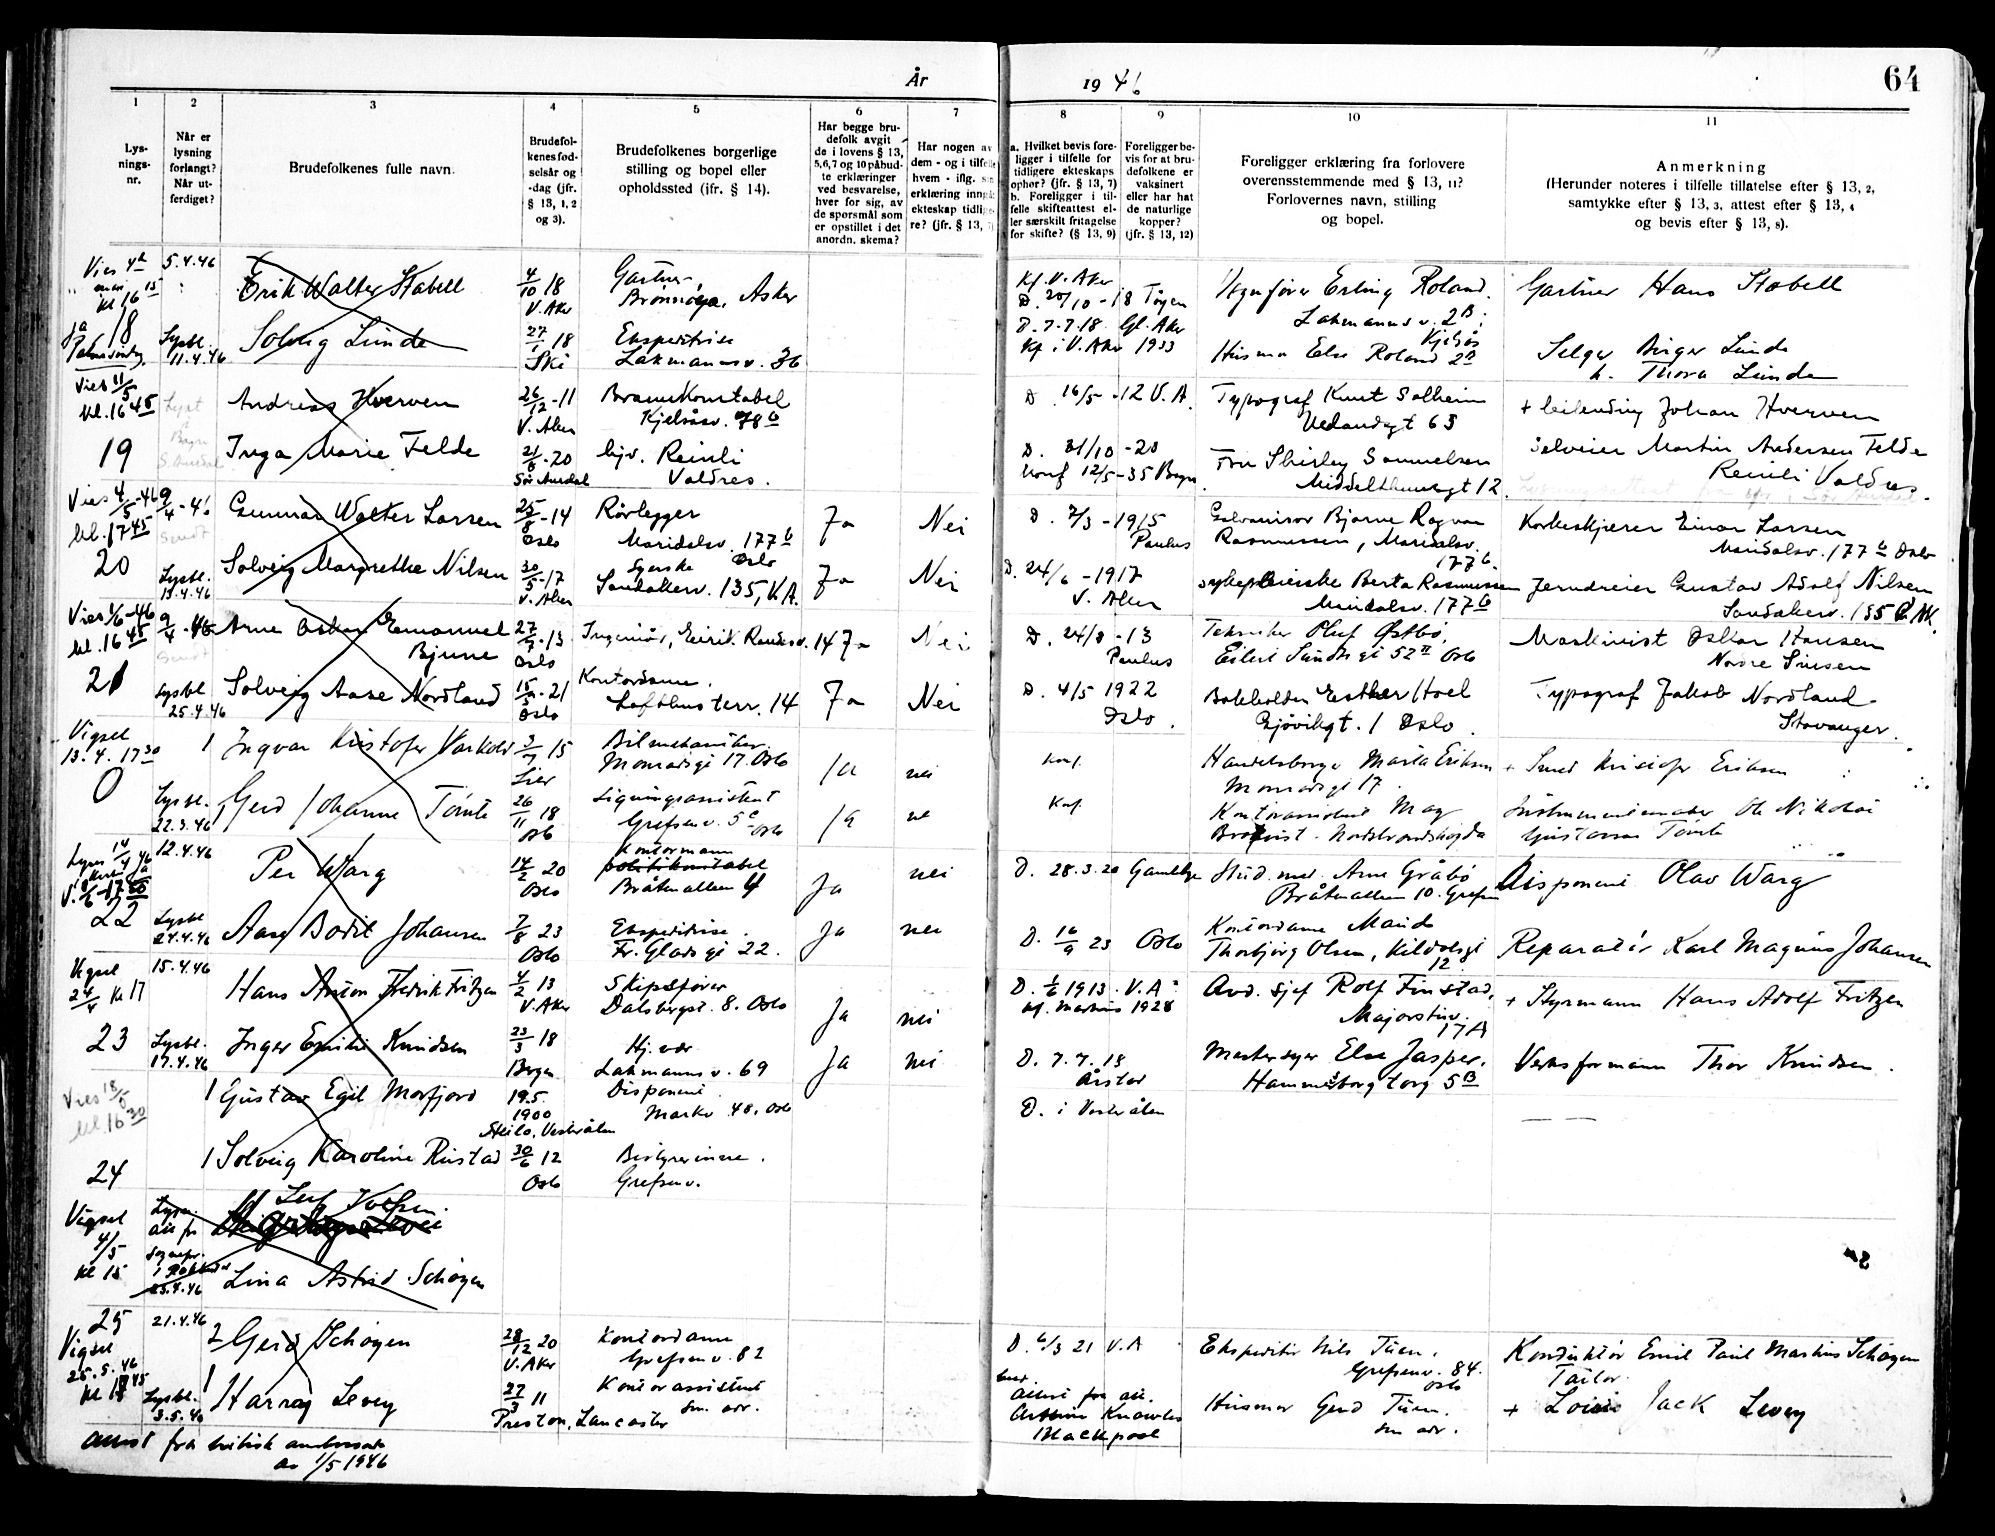 År 1946
64
1
2
3
4
5
6
7
8
9
10
11
Lys-
nings-
nr.
Når er
lysning
forlangt?
Når ut-
ferdiget?
Brudefolkenes fulle navn.
Brudefol-
kenes fød-
selsår og
-dag (jfr.
§ 13, 1, 2
og 3).
Brudefolkenes borgerlige
stilling og bopel eller
opholdssted (jfr. § 14).
Har begge bru-
defolk avgit
de i lovens § 13,
5,6,7 og 10 påbud-
te erklæringer
ved besvarelse,
hver for sig, av
de spørsmål som
er opstillet i det
anordn. skema?
Har nogen av
dem - og i tilfelle
hvem - iflg. sin
erklæring inngå
ekteskap tidlige
re? (jfr. § 13, 7)
a. Hvilket bevis fore-
ligger i tilfelle for
tidligere ekteskaps
ophør? (jfr. § 13, 7)
b. Foreligger i til-
felle skifteattest el-
ler særskilt fritagelse
for skifte? (§ 13, 9)
Foreligger be-
vis for at bru-
defolkene er
vaksinert
eller har hat
de naturlige
kopper?
(jfr. § 13, 12)
Foreligger erklæring fra forlovere
overensstemmende med § 13, 11?
Forlovernes navn, stilling
og bopel.
Anmerkning
(Herunder noteres i tilfelle tillatelse efter § 13, 2,
samtykke efter § 13, 3, attest efter § 13, 4
og bevis efter § 13, 8).
Vies 4de mai kl 16 15
5.4.46
Erik Walter Stabell
4/10 18 V. Aker
Gartner, Brønnøya, Asker
Kf. V. Aker
D. 20/10 - 18 Tøyen
Vognfører Erling Roland. Lakmannsv. 2B; Kjelsås
Gartner Hans Stabell
18
Lysbl. 11.4.46
Solveig Lunde
27/1 18 Ski
Ekspeditrise Lakmannsv. 36
D. 7.7.18. Gl. Aker
Kf i V. Aker 1933
Husmor Else Roland 2B
Selger Birger Lunde
h. Thora Lunde
Vies 11/5 kl. 16 45
Andreas Hverven
26/12 - 11 V. Aker
Brannkonstabel Kjelsåsv. 78b
D. 16/5 - 12 V. A.
Typograf Kurt Solheim
Vedandsgt 63
+ leilending Johan Hverven
19
Inga Marie Felde
21/8 - 20 Sør Aurdal
hjv. Reinli Valdres.
D. 31/10 - 20
Konf 12/5 - 35 Bagn
Fru Shirley Samuelsen
Middelthunsgt 12.
Selveier Martin Andersen Felde
Reinli Valdres.
Vies 4/5 - 46 kl. 17 45
9/4 - 46
Sendt
Gunnar Walter Larsen
25/8 - 14 Oslo
Rørlegger Maridalsv. 177b Oslo
Ja
Nei
D. 7/3 - 1915 Paulus
Galvanisør Bjarne Ragnar
Rasmussen, Maridalsv. 177b.
Korkeskjærer Einar Larsen
Maridalsv. 177b Oslo
20
Lysbl. 15.4.46
Solveig Margrethe Nilsen
30/5 - 17 V. Aker
Syerske Sandakerv. 135, V.A.
Ja
Nei
D. 24/6 - 1917 V. Aker
Sykepleierske Berta Rasmussen
Maridalsv. 177b
Jerndreier Gustav Adolf Nilsen
Sandakerv. 135 V. Ak.
Vies 1/6 - 46 kl. 16 45
9/4 - 46
Sendt
Arne Oskar Emanuel Bjune
27/7 - 13 Oslo
Ingeniør, Eirik Raudesv. 14
Ja
Nei
D. 24/8 - 13 Paulus
Tekniker Oluf Østbø,
Eilert Sundts gt 52 II Oslo
Maskinist Oskar Hansen
Nordre Sinsen
21
Lysbl 25.4.46
Solveig Aase Nordland
15/3 - 21 Oslo
Kontordame. Lofthusterr. 14
Ja
Nei
D. 4/5 1922 Oslo.
Bokholder Esther Hoel
Gjøvikgt. 1 Oslo.
Typograf Jakob Nordland
Stavanger.
Vigsel 13.4. 17 30
1 Ingvar Kristofer Varkold
3/7 15 Lier
Bilmekaniker. Monradsgt 17. Oslo
Ja
nei
Konf.
Handelsborger Marta Eriksen
Monradsgt 17.
+ Smed Kristofer Eriksen
0
Lysbl. 22.3.46
1 Gerd Johanne Tømte
26/11 18 Oslo
Ligningsassistent Grefsenv. 5c Oslo
Ja
nei
Konf.
Kontorassistent May
Broqvist. Nordstrandshøgda
Instrumentmaker Ole Nikolai
Gustavsen Tømte
Lyses 14/4 46
V. 8/6 - 17 30
12.4.46
Per Warg
14/2 20 Oslo
Kontormann
politikonstabel
Bråtenalleen 4
Ja
nei
D. 28.3.20 Gamleby
Stud. med. Arne Gråbø
Bråtenalleen 10. Grefsen
Disponent Olav Warg
22
Lysbl 24.4.46
Aase Bodil Johansen
7/8 23 Oslo
Ekspeditrise. Fr. Glads gt 22.
Ja
nei
D. 16/9 23 Oslo
Kontordame Maud
Thorbjørg Olsen, Kildalsgt 12.
Reparatør Karl Magnus Johansen
Vigsel 24/4 Kl 17
15.4.46
Hans Anton Fredrik Fritzen
4/2 13 V. Aker
Skipsfører Dalsbergst. 8. Oslo
Ja
nei
D. 1/6 1913. V. A.
kf. Markus 1928
Avd. sjef Rolf Finstad,
Majorstuv. 17A
+ Styrmann Hans Adolf Fritzen
23
Lysbl. 17.4.46
Inger Emilie Knudsen
23/3 18 Bergen
Hj. vær. Lakmannsv. 69
Ja
nei
D. 7.7.18 Årstad
Mastersyer Else Jasper.
Hammersborg torg 5B
Verksformann Thor Knudsen.
Vies 18/5 kl. 16 30
1 Gustav Egil Morfjord
19.5. 1900 Steilo, Vesterålen
Disponent Markv 48. Oslo
D. i Vesterålen
24
1 Solveig Karoline Rustad
30/6 12 Oslo
Bestyrerinne. Grefsenv.
Vigsel 4/5 kl 15
Lysn. att. fr. sognepr. i
23.4.46
Leif
Lina Astrid Schøyen
25
21.4.46
Vigsel 25.5.46 kl 18 45
2 Gerd Schøyen
28/12 20 V. Aker
Kontordame Grefsenv. 82
D. 6/3 21 V. A
Ekspeditør Nils Tuen.
Grefsenv. 84. Oslo
Konduktør Emil Paul Markus Schøyen
Lysbl. 3.5.46
1 Harray Levey
27/3 11 Preston, Lancaster
Kontorassistent Sm. adr.
Attest fra att.
Arthur Knowles
Blackpool
Husmor Gerd Tuen.
Sm adr.
Tailor.
+ Louis Jack Levey
Attest fra britisk ambassade
av 1/5 1946